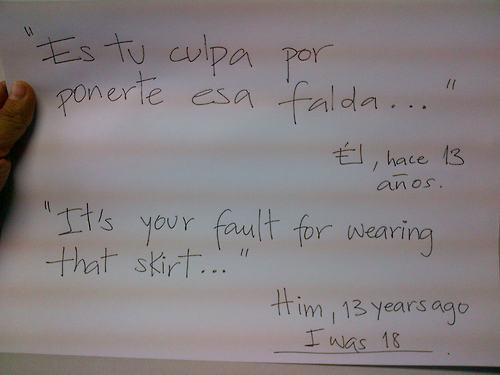 "Es tu culpa por
ponerte esa falda..."
Él, hace 13
años.
"It's your fault for wearing
that skirt..."
Him, 13 years ago
I was 18.